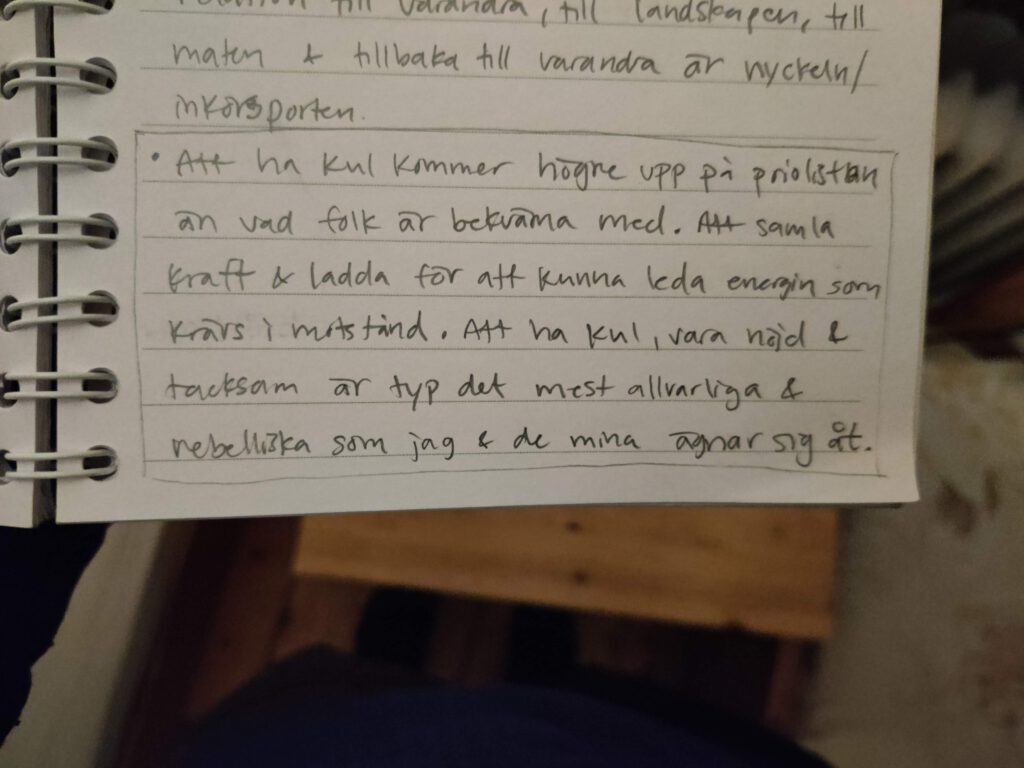 relation till varandra, till landskapen, till
maten & tillbaka till varandra är nyckeln/
inkörsporten.
• Att ha kul kommer högre upp på priolistan
än vad folk är bekväma med. Att samla
kraft & ladda för att kunna leda energin som
krävs i motstånd. Att ha kul, vara nöjd &
tacksam är typ det mest allvarliga &
rebelliska som jag & de mina ägnar sig åt.